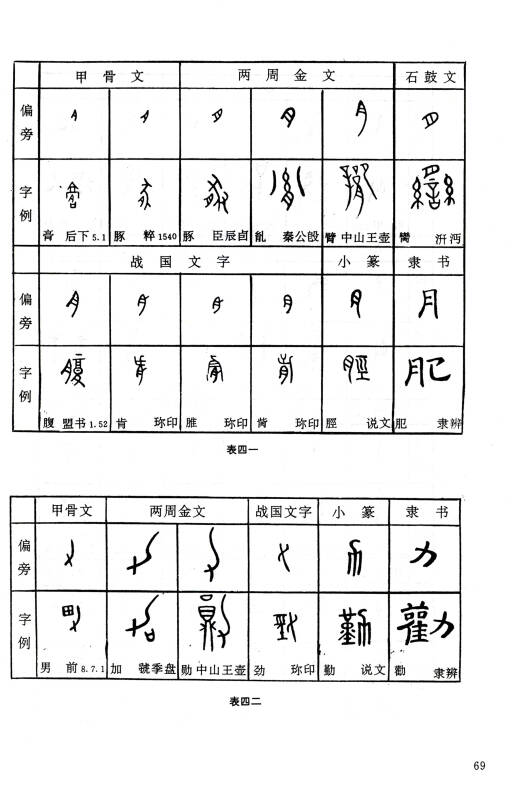 甲骨文 两周金文 石鼓文
偏旁
字例
膏 后下5.1 豚 粹1540 豚 臣辰卣 胤 秦公𣪘 臂 中山王壶 臠 汧沔
战国文字 小篆 隶书
偏旁
字例
腹 盟书1.52 肯 珎印 珎印 珎印 脛 说文 肥 隶辨
表四一
甲骨文 两周金文 战国文字 小篆 隶书
偏旁
字例
男 前8.7.1 加 虢季盘 勋 中山王壶 劲 珎印 勤 说文 勸 隶辨
表四二
69